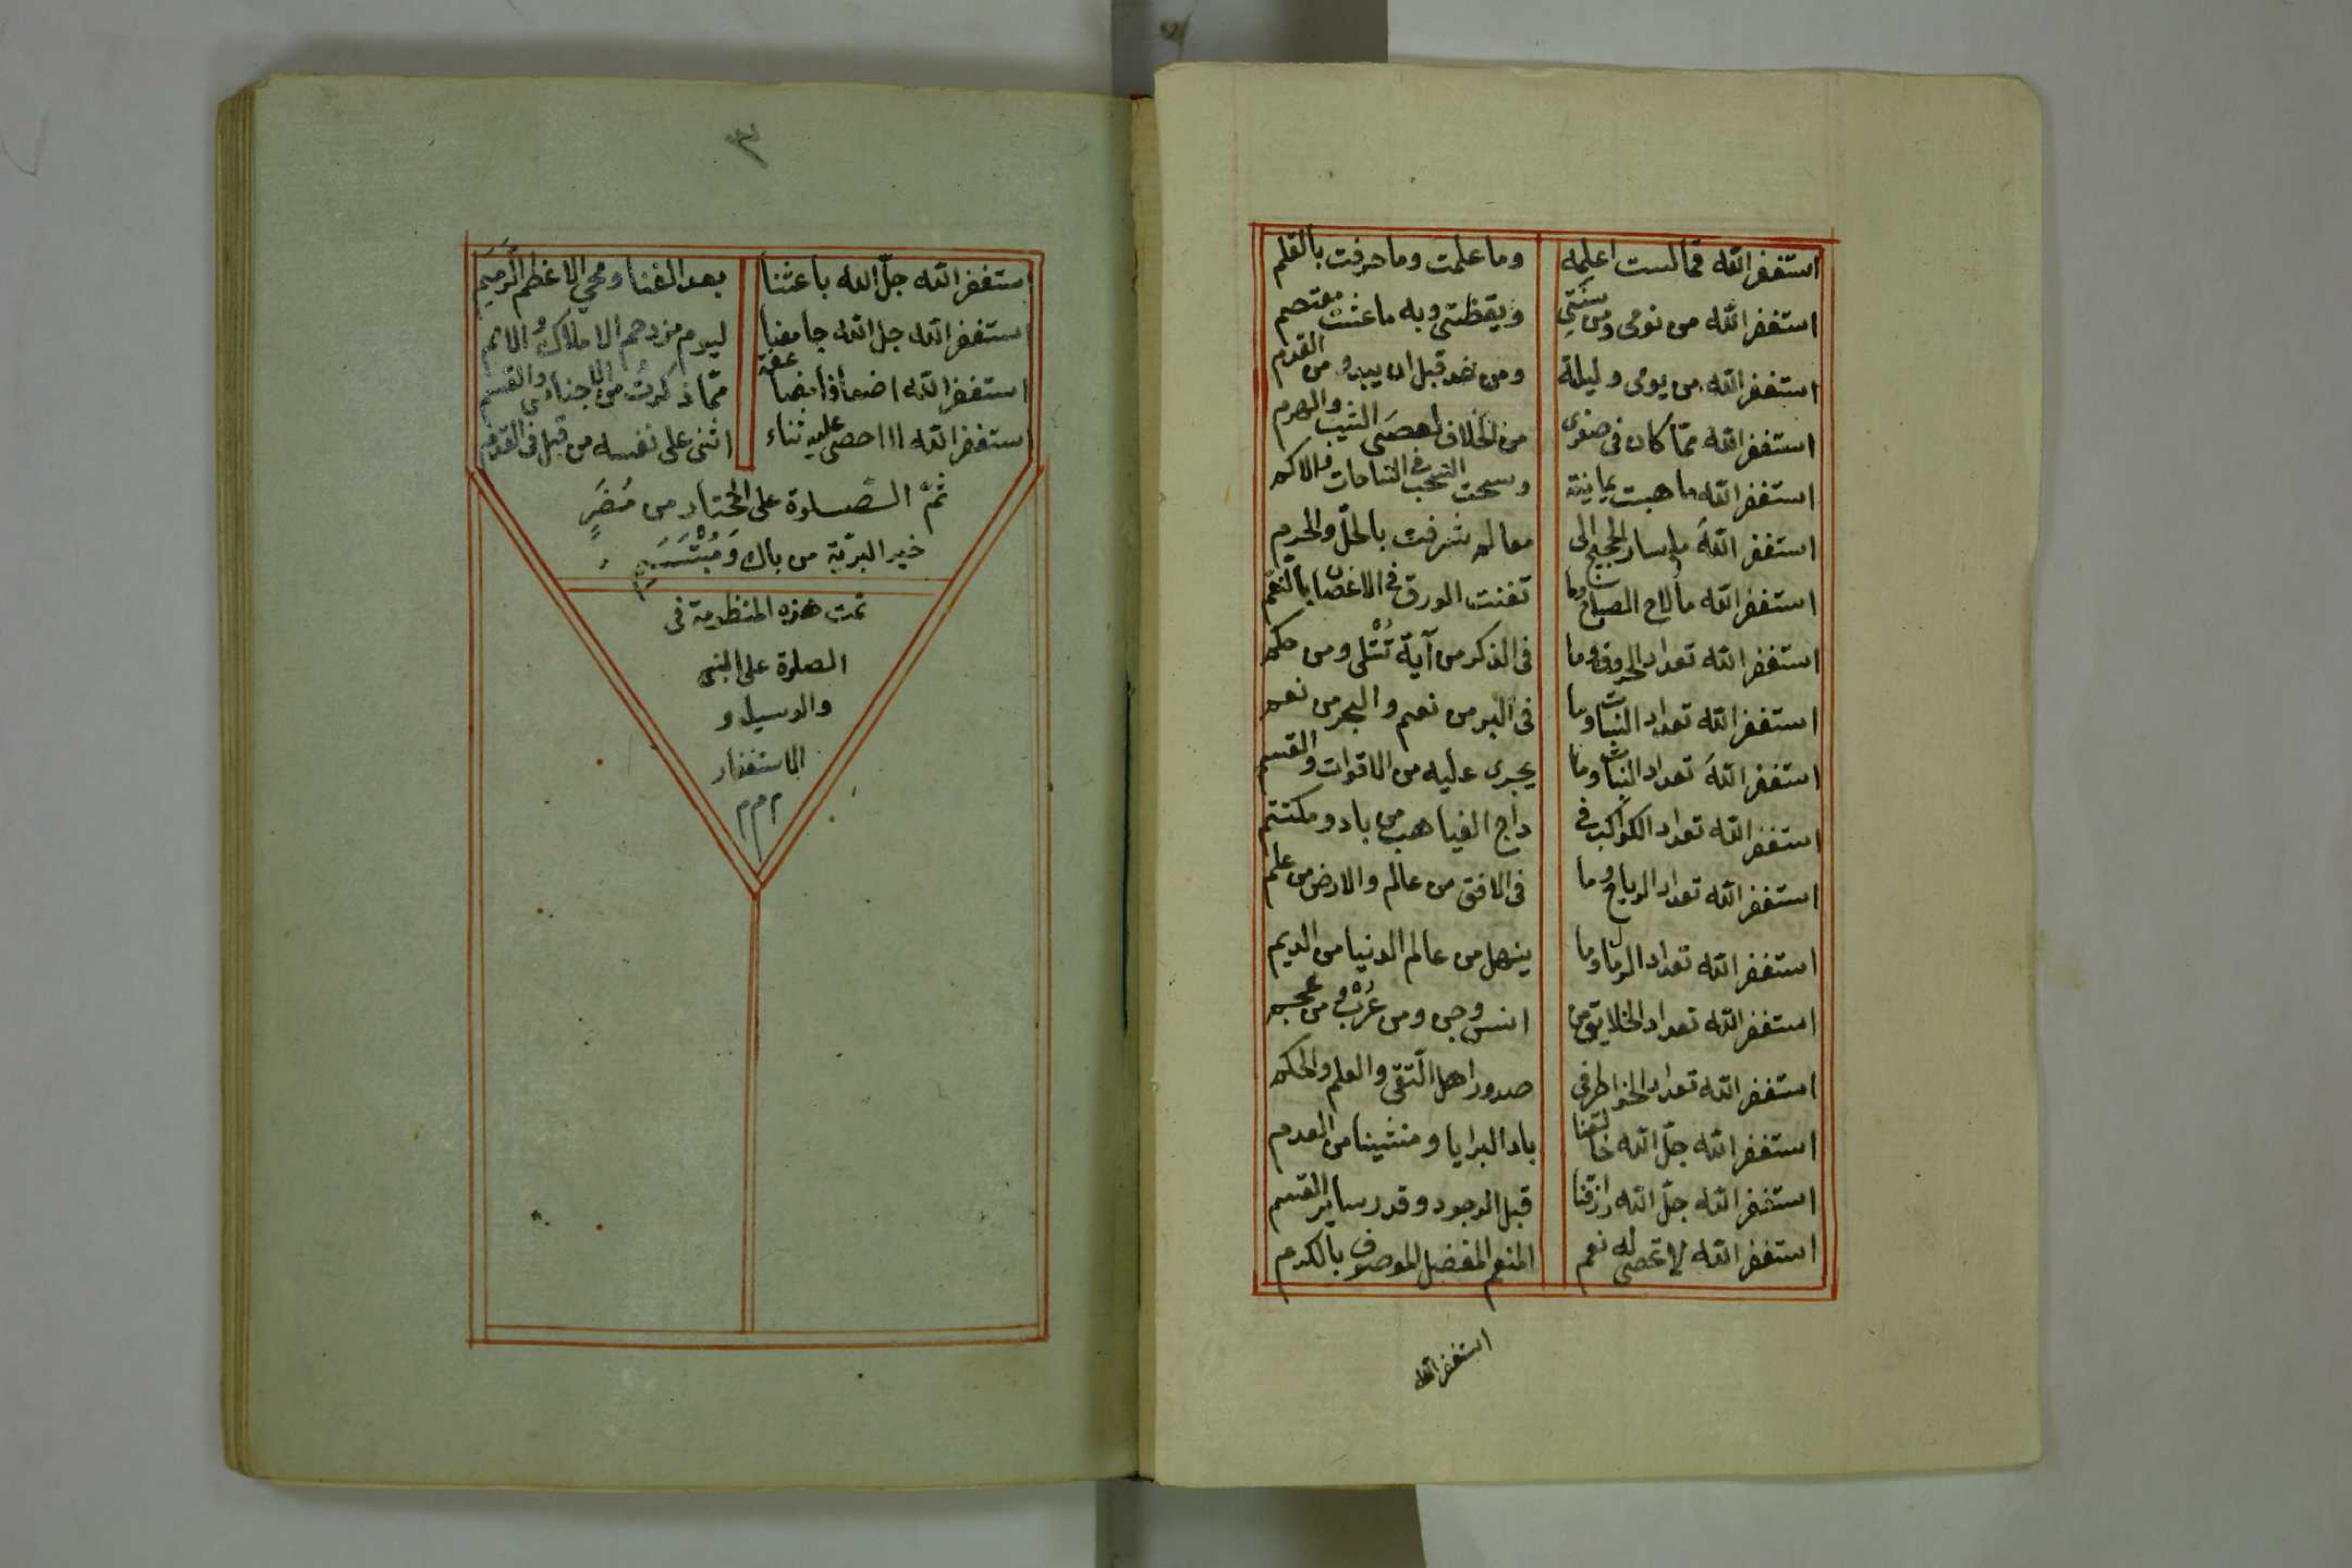 استغفر الله مما لست اعلمه وما علمت وما حرفت بالقلم
استغفر الله من نومى ومن سنتي ويقظتى وبه ما عشت معتصم
استغفر الله من يومى وليلته ومن غد قبل ان يبدو ومن القدم
استغفر الله مما كان فى صغرى من الخلاف لعصى الشيب والهرم
استغفر الله ما هبت يمانية وسحت السحب فى الساحات والاكم
استغفر اللهَ ما سار الحجيج الى معالم شرفت بالحلّ والحرم
استغفر الله ما لاح الصباح وما تغنت الورق فى الاغصان بالنغم
استغفر الله تعداد الحروف وما فى الذكر من آية تُتْلى ومن حكم
استغفر الله تعداد النبات وما فى البر من نعم والبحر من نعم
استغفر اللهَ تعداد النبات وما يجرى عليه من الاقوات والقسم
استغفر الله تعداد الكواكب فى داج الغياهب من باد ومكتتم
استغفر الله تعداد الرياح وما فى الافق من عالم والارض من علم
استغفر الله تعداد الرمال وما ينهل من عالم الدنيا من الديم
استغفر الله تعداد الخلايق من انس وجن ومن عُرْب ومن عجم
استغفر الله تعداد الخواطر فى صدور اهل التقى والعلم والحكم
استغفر الله جلّ الله خالقنا باد البرايا ومنشينا من العدم
استغفر الله جلّ الله رازقنا قبل الوجود وقد رساير القسم
استغفر الله لا تحصى له نعم المنعم المفضل الموصوف بالكرم
استغفر الله
٣
استغفر الله جلّ الله باعثنا بعد الفنا ومحي الاعظم الرَمِيَمِ
استغفر الله جل الله جامعنا ليوم مزدحم الاملاك والامم
استغفر الله اضعافا مضاعفة ممّا ذكرت من الاجناس والقسم
استغفر الله لا احصى عليه ثناء اثنى على نفسه من قبل فى القدم
ثمّ الصلوة على المختار من مُضَرٍ
خير البريّة من باك وَمُبْتَسَمِ
تمت هذه المنظومة فى
الصلوة على النبى
والوسيل و
الاستغفار
م م م